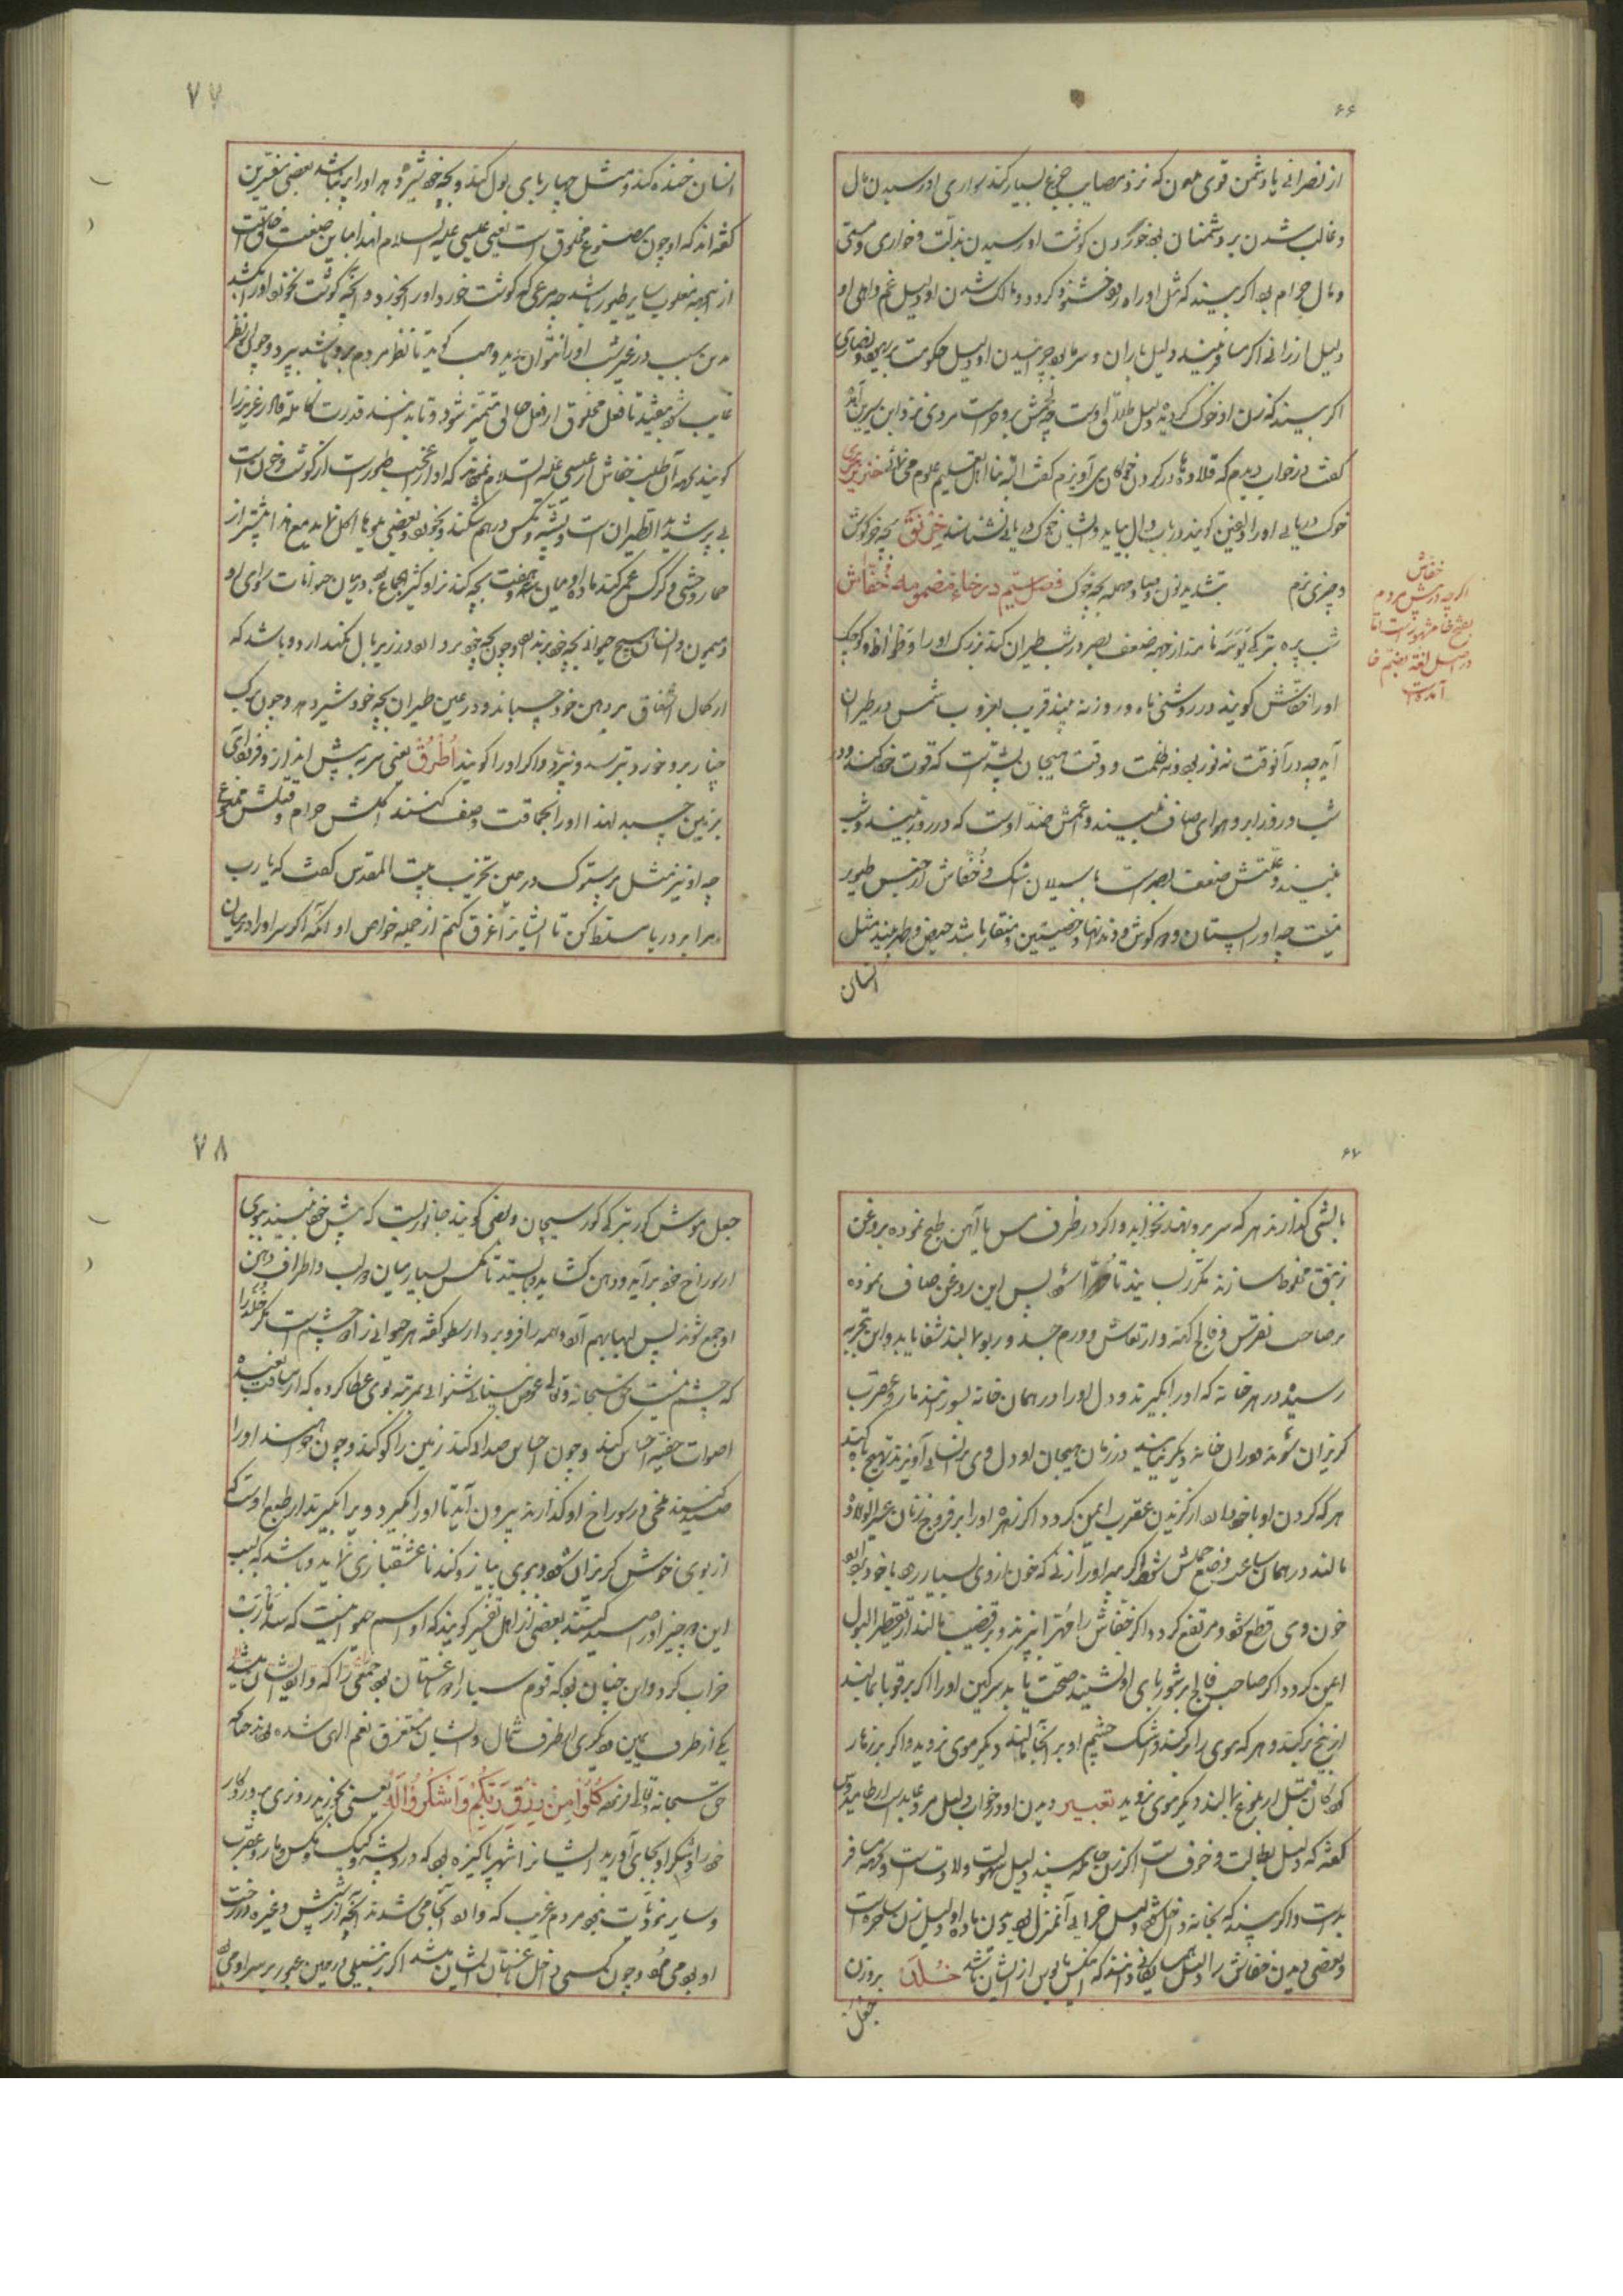 ۶۶
از نصرانی یا دشمن قوی ملعون که نزد مصایب جزع بسیار کند سواری او رسیدن مال
و غالب شدن بر دشمنان بود خوردن گوشت او رسیدن بذلت و خواری و مستی
و مال حرام بود اگر بیند که مثل او راه رود خشنود گردد و مالک شدن او دلیل غم و اهلی او
دلیل ارزانی اگر مسافر بیند دلیل باران و سرما بود چرانیدن او دلیل حکومت بر یهود و نصاری
اگر بیند که زن او خوک گردیده دلیل طلاق اوست چه لحمش بر وی حرامست مردی نزد ابن سیرین آمده
گفت در خواب دیدم که قلاده‌ها در گردن خوکان می آویزم گفت البته بنا اهل تعلیم علوم می نمائی خنزیر بحری
خوک دریائی او را دلفین گویند در باب دال بیاید و ایشان خوک دریائی نشناسند خرنق بچه خرگوش
و چیزی نرم بتشدید نون و صاد مهمله بچه خوک فصل سیم در خاء مضمومه خفاش
شب پره بترکی یرسه نامند از جهة ضعف بصر در شب طیران کند بزرگ او را وطواط و کوچک
او را خفاش گویند در روشنی ماه و روز نه بیند قریب بغروب شمس در طیران
آید چه در آنوقت نه نور بود و نه ظلمت و وقت هیجان پشه است که قوت خود کند و در
شب و روز ابر و هوای صاف نمی بیند و اعمش ضد اوست که در روز نبیند و شب
ببیند و علتش ضعف بصر است با سیلان اشک و خفاش از جنس طیور
نیست چه او را پستان و دو گوش و دندانها و خصیتین و منقار باشد حیض و طهر بیند مثل
انسان
خفاش
اگرچه در پیش مردم
بفتح خا مشهور است اما
در اصل لغة بضم خا
آمده است
۷۷
انسان خنده کند و مثل چهارپای بول کند و بچه خود شیر دهد او را پر نباشد بعضی مفسرین
گفته اند که او چون مصنوع مخلوق است یعنی عیسی علیه السلام لهذا مباین صنعت خالق است
از اینجهة مغلوب سایر طیور باشد چه مرغی که گوشت خورد او را بخورد و آنچه گوشت نخورد او را بکشد
بدین سبب در غیر شب او را نتوان دید وهب گوید تا نظر مردم برو باشد بپرد و چون از نظر
غایب شود بیفتد تا فعل مخلوق از فعل خالق متمیز شود و تا بدانند قدرت کامله قادر عزیز را
گویند یهود از آن طلب خفاش از عیسی علیه السلام نمودند که او از عجب طیور است از گوشت و خون است
بی پر شدید الطیران است و پشه و مگس در هم شکند و بخورد و بعضی میوها اکل نماید مع هذا بیشتر از
حمار وحشی و کرکس عمر کند ماده او میان سه و هفت بچه کند نر او کثیر الجماع بود در میان حیوانات سوای او
و میمون و انسان هیچ حیوانی بچه خود بر ندارد و چون بچه خود بردارد در زیر بال نگهدارد و باشد که
از کمال اشفاق بر دهن خود چسباند و در عین طیران بچه خود شیر دهد و چون برگ
چنار برو خورد بترسد و نپرد و اگر او را گویند اطرق یعنی سر به پیش انداز و فرود آی
بزمین چسبد لهذا او را بحماقت وصف کنند اکلش حرام و قتلش ممنوع
چه او نیز مثل پرستوک در حین تخریب بیت المقدس گفت که یا رب
مرا بر دریا مسلط کن تا ایشانرا غرق کنم از جمله خواص او آنکه اگر سر او را در میان
۶۷
بالشی گذارند هر که سر برو نهد نخوابد و اگر در ظرف مس یا آهن طبخ نموده بروغن
زنبق مخلوط سازند مکرر بسایند تا مهرا شود پس این روغن صاف نموده
بر صاحب نقرس و فالج کهنه و ارتعاش و ورم جسد و ربو مالند شفا یابد و این بتجربه
رسیده در هر خانه که او را بگیرند و دل او را در همان خانه بسوزانند مار و عقرب
گریزان شوند و در آن خانه دیگر نیایند در زمان هیجان او دل وی بر انسانی آویزند تهیج باه کند
هر که گردن او با خود دارد از گزیدن عقرب ایمن گردد اگر زهره او را بر فروج زنان عسر الولاده
مالند در همان ساعت وضع حملش شود اگر پیه او را زنی که خون از وی بسیار رود با خود بردارد
خون وی قطع شود و مرتفع گردد اگر خفاش را مهرا بپزند و بر قضیب مالند از تقطیر البول
ایمن گردد اگر صاحب فالج بر شوربای او نشیند صحت یابد سرگین او را اگر بر قوبا بمالند
از بیخ برکند و هر که موی را برکند و اشک چشم او بر آنجا مالند دیگر موی نروید و اگر بر زهار
کودکان قبل از بلوغ بمالند دیگر موی نروید تعبیر دیدن او در خواب دلیل مرد عابد است ارطامیدورس
گفته که دلیل بطالت و خرف است اگر زن حامله بیند دلیل سهولت ولادتست و گر مسافر
بد است و اگر بیند که بخانه داخل شود دلیل خرابی آنمنزل بود دیدن ماده او دلیل زن ساحره است
و بعضی دیدن خفاش را دلیل همسایگانی دانند که هیچکس مأیوس از ایشان نباشد خلد بروزن
جعل
۷۸
جعل موش کور بترکی کور سیچان و بعضی گویند جانوریست که پیش خود نمی بیند ببوی
از سوراخ خود برآید و دهن گشاید و بایستد تا مگس بسیار میان دو لب و اطراف دهن
او جمع شوند پس لبها بهم آرد و همه را فرو برد ارسطو گفته هر حیوانی را دو چشم است مگر خلد را
که چشم نیست حق سبحانه و تعالی عوض بینائی شنوائی بمرتبه بوی عطا کرده که از مسافت بعیده
اصوات خفیه احساس کند و چون احساس صدا کند زمین را گو کند و چون خواهند او را
صید کنند ملخی در سوراخ او گذارند بیرون آید تا او را بگیرد ویرا بگیرند از طبع اوست که
از بوی خوش گریزان شود و ببوی پیاز و گندنا عشقبازی نماید و باشد که بسبب
این دو چیز او را صید کنند بعضی از اهل تفسیر گویند که او اسم حیوانیست که سد مأرب
خراب کرد و این چنان بود که قوم سبا را دو باغستان بود جمعی را که وارد ایشان میشد
یکی از طرف یمین و دیگری از طرف شمال و ایشان مستغرق نعم الهی شده بودند چنانکه
حق سبحانه و تعالی فرموده كُلُوا مِنْ رِزْقِ رَبِّكُمْ وَاشْكُرُوا لَهُ یعنی بخورید روزی پروردگار
خود را و شکر او بجای آورید ایشانرا شهر پاکیزه بود که در او پشه و کیک و مگس و مار و عقرب
و سایر موذیات نبود مردم غریب که وارد آنجا می شدند آنچه از شپش و غیره در رخت
او بود می مرد و چون کسی داخل باغستان ایشان میشد اگر زنبیلی در حین عبور بر سر او می بود